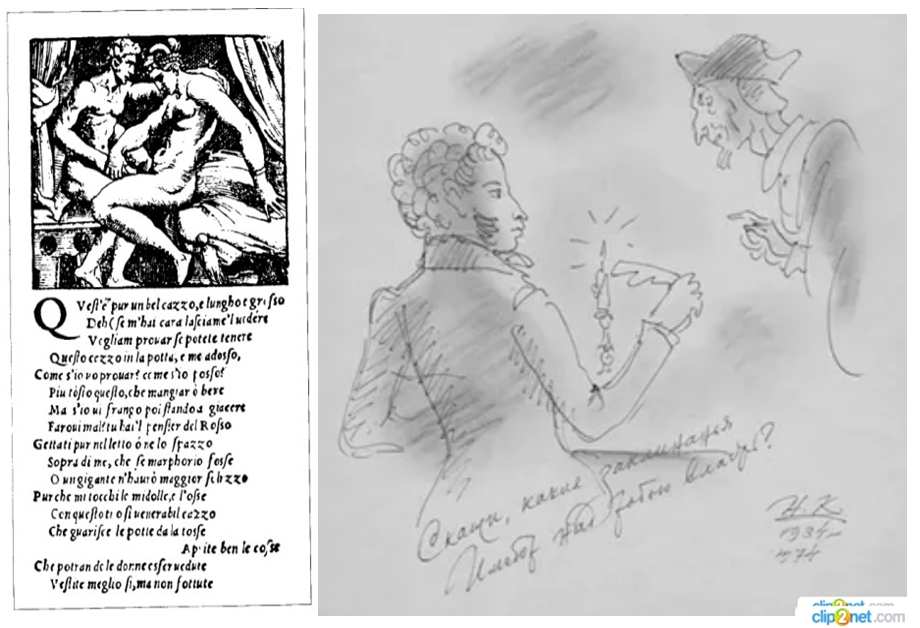 QVest'è pur un bel cazzo, e lungho e grosso
Deh (se m'hai cara lasciame'l uedere
Vogliam prouar se potete tenere
Questo cezzo in la potta, e me adosso,
Come s'io uo prouar? come s'io posso?
Piu tosto questo, che mangiar ò bere
Ma s'io ui frango poi stando a giacere
Faroui mal? tu hai'l pensier del Rosso
Gettati pur nel letto ò ne lo spazzo
Sopra di me, che se marphorio fosse
O un gigante n'haurò maggior
Pur che mi tocchi le midolle, e l'osse
Con questo si venerabil cazzo
Che guarisce le potte da la tosse
Aprite ben le cosse
Che potran de le donne esser uedute
Vestite meglio si, ma non fottute
Скажи, какие заклинанья
Имеют над тобою власть?
Н.К
1934-
974
clip2net.com
clip2net.com